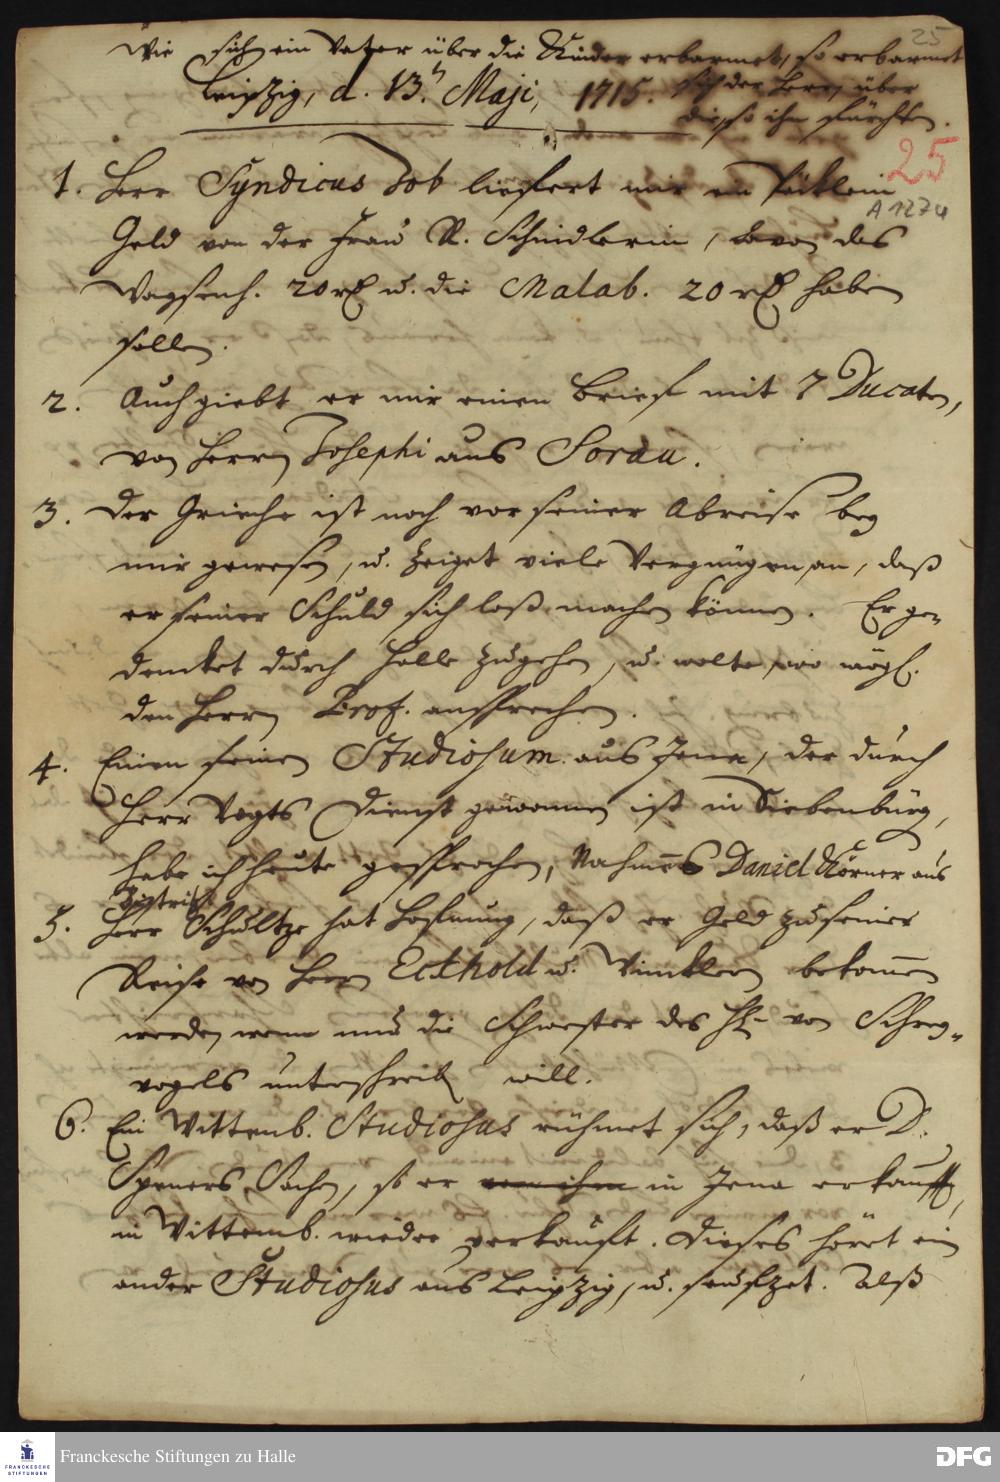 25
Wie sich ein Vater über die Kinder erbarmet, so erbarmet
Leipzig, d. 13.ᵗ Maji, 1715. sich der Herr über
die, so ihn fürchten.
25
A 1274
1. Herr Syndicus Job lieffert mir ein Päcklein
Geld von der Frau R. Schindlerin, davon das
Waysenh. 20 rℓ u. die Malab. 20 rℓ haben
sollen.
2. Auch giebt er mir einen Brieff mit 7 Ducaten,
von Herrn Josephi aus Sorau.
3. Der Grieche ist noch vor seiner Abreise bey
mir gewesen, u. zeiget viele Vergnügen an, daß
er seiner Schuld sich loß machen können. Er ge-
dencket durch Halle zugehen, u. wolte, wo mögl.
den Herrn Prof. ansprechen.
4. Einen feinen Studiosum aus Jena, der durch
Herr Vogts Dienst gewonnen ist in Siebenbürg,
habe ich heute gesprochen, Nahmens Daniel Körner aus
Bistritz.
5. Herr Schultze hat Hoffnung, daß er Geld zu seiner
Reise von Herrn Eckhold u. Wincklern bekommen
werde, wenn nur die Schwester des H. von Schrey-
vogels unterschreib will.
6. Ein Wittenb. Studiosus rühmet sich, daß er D.
Speners Sachen, so er von ihm in Jena erkaufft,
in Wittemb. wieder verkaufft. Dieses höret ein
ander Studiosus aus Leipzig, u. seufzet. Alß
FRANCKESCHE
STIFTUNGEN
Franckesche Stiftungen zu Halle
DFG